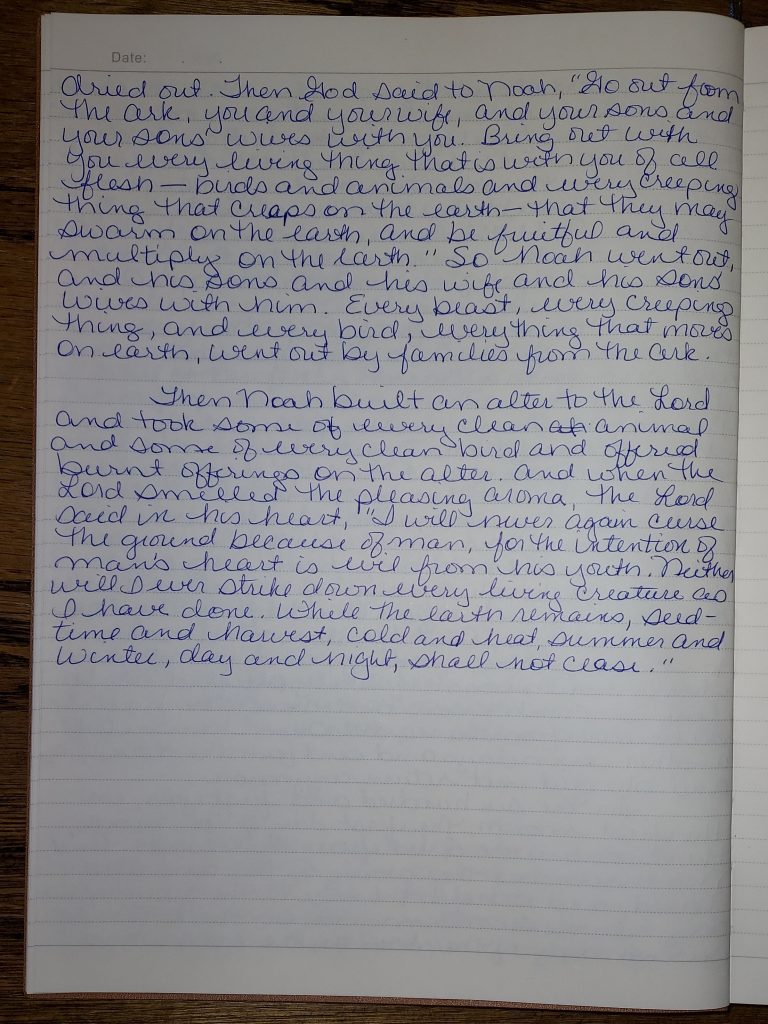 Date:
dried out. Then God said to Noah, "Go out from
the ark, you and your wife, and your sons and
your sons' wives with you. Bring out with
you every living thing that is with you of all
flesh — birds and animals and every creeping
thing that creaps on the earth — that they may
swarm on the earth, and be fruitful and
multiply on the earth." So Noah went out,
and his sons and his wife and his sons'
wives with him. Every beast, every creeping
thing, and every bird, everything that moves
on earth, went out by families from the ark.
Then Noah built an alter to the Lord
and took some of every clean animal
and some of every clean bird and offered
burnt offerings on the alter. And when the
Lord smelled the pleasing aroma, the Lord
said in his heart, "I will never again curse
the ground because of man, for the intention of
man's heart is evil from his youth. Neither
will I ever strike down every living creature as
I have done. While the earth remains, seed-
time and harvest, cold and heat, summer and
winter, day and night, shall not cease."